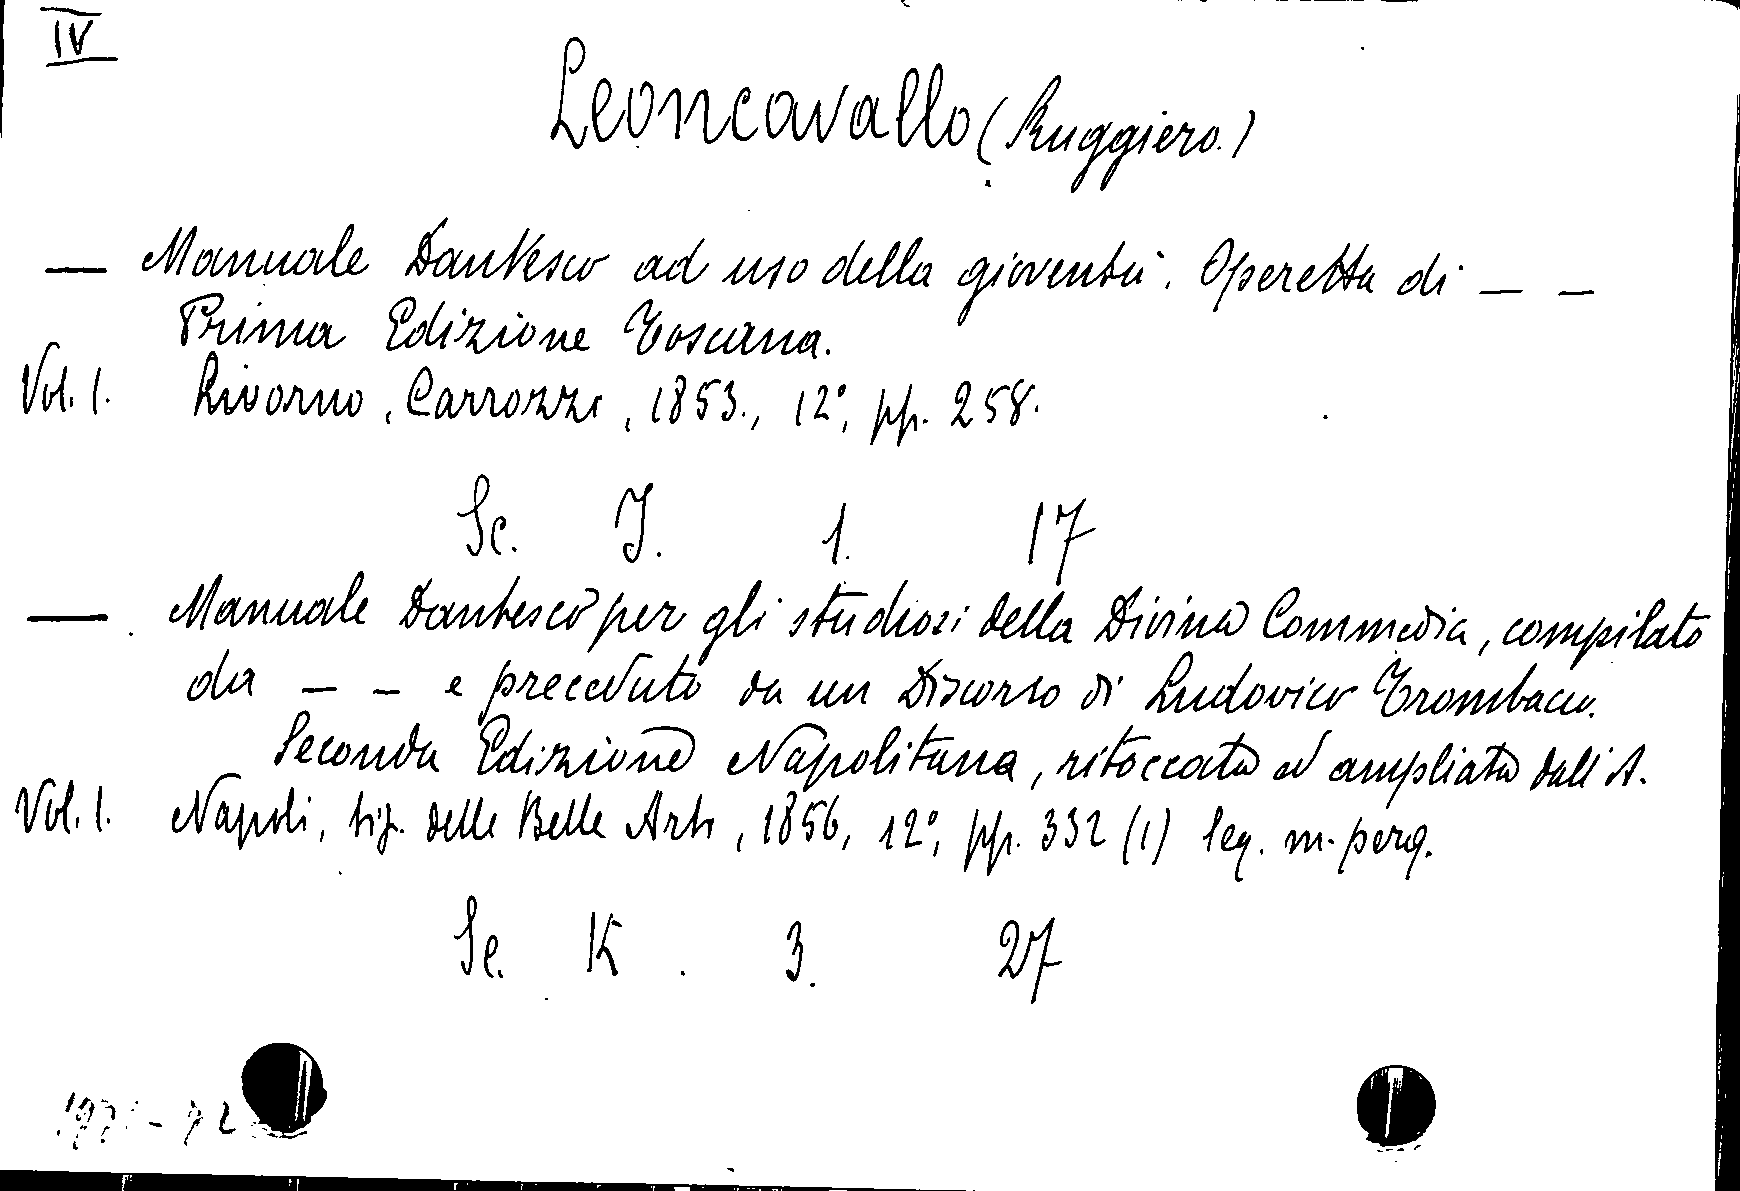 IV
Leoncavallo (Ruggiero.)
— Manuale Dantesco ad uso della gioventù. Operetta di — —
Prima Edizione Toscana.
Vol. 1. Livorno, Carrozzi, 1853., 12°, pp. 258.
Sc. J. 1. 17
— Manuale Dantesco per gli studiosi della Divina Commedia, compilato
da — — e preceduto da un Discorso di Ludovico Trombacco.
Seconda Edizione Napolitana, ritoccata ed ampliata dall'A.
Vol. 1. Napoli, tip. delle Belle Arti, 1856, 12°, pp. 332 (1) leg. m. perg.
Sc. K. 3. 27